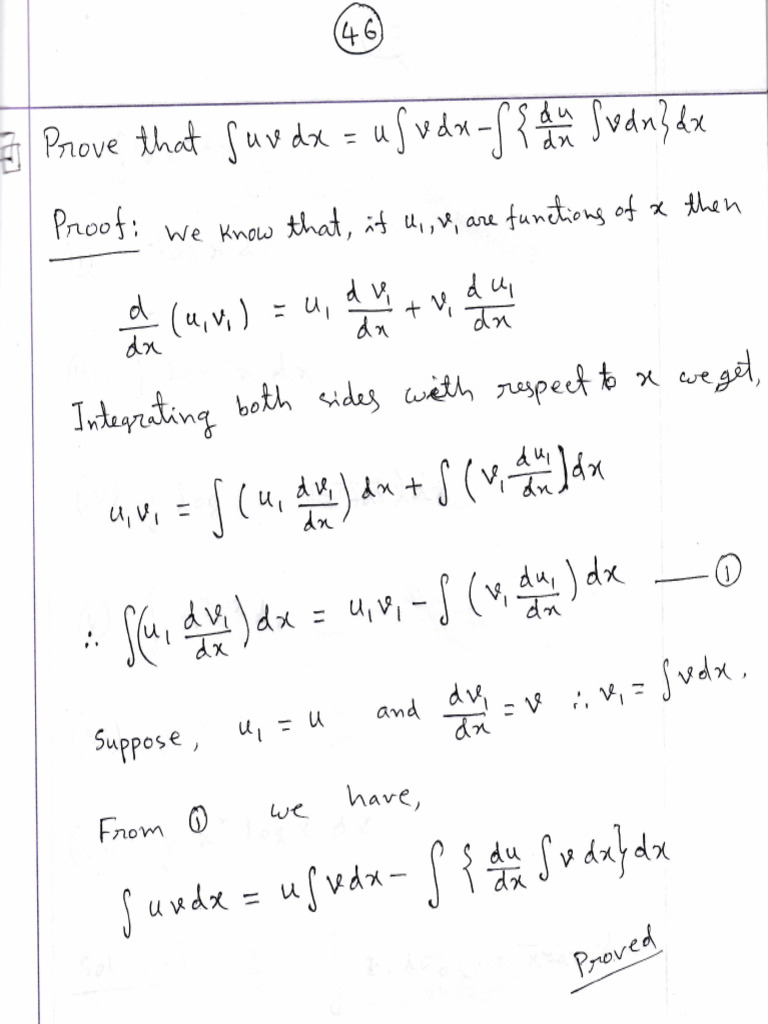 46
Prove that ∫uv dx = u∫v dx - ∫{du/dx ∫v dx} dx
Proof: We know that, if u₁, v₁ are functions of x then
d/dx (u₁v₁) = u₁ dv₁/dx + v₁ du₁/dx
Integrating both sides with respect to x we get,
u₁v₁ = ∫(u₁ dv₁/dx) dx + ∫(v₁ du₁/dx) dx
∴ ∫(u₁ dv₁/dx) dx = u₁v₁ - ∫(v₁ du₁/dx) dx — ①
Suppose, u₁ = u and dv₁/dx = v ∴ v₁ = ∫v dx.
From ① we have,
∫uv dx = u∫v dx - ∫{du/dx ∫v dx} dx
Proved